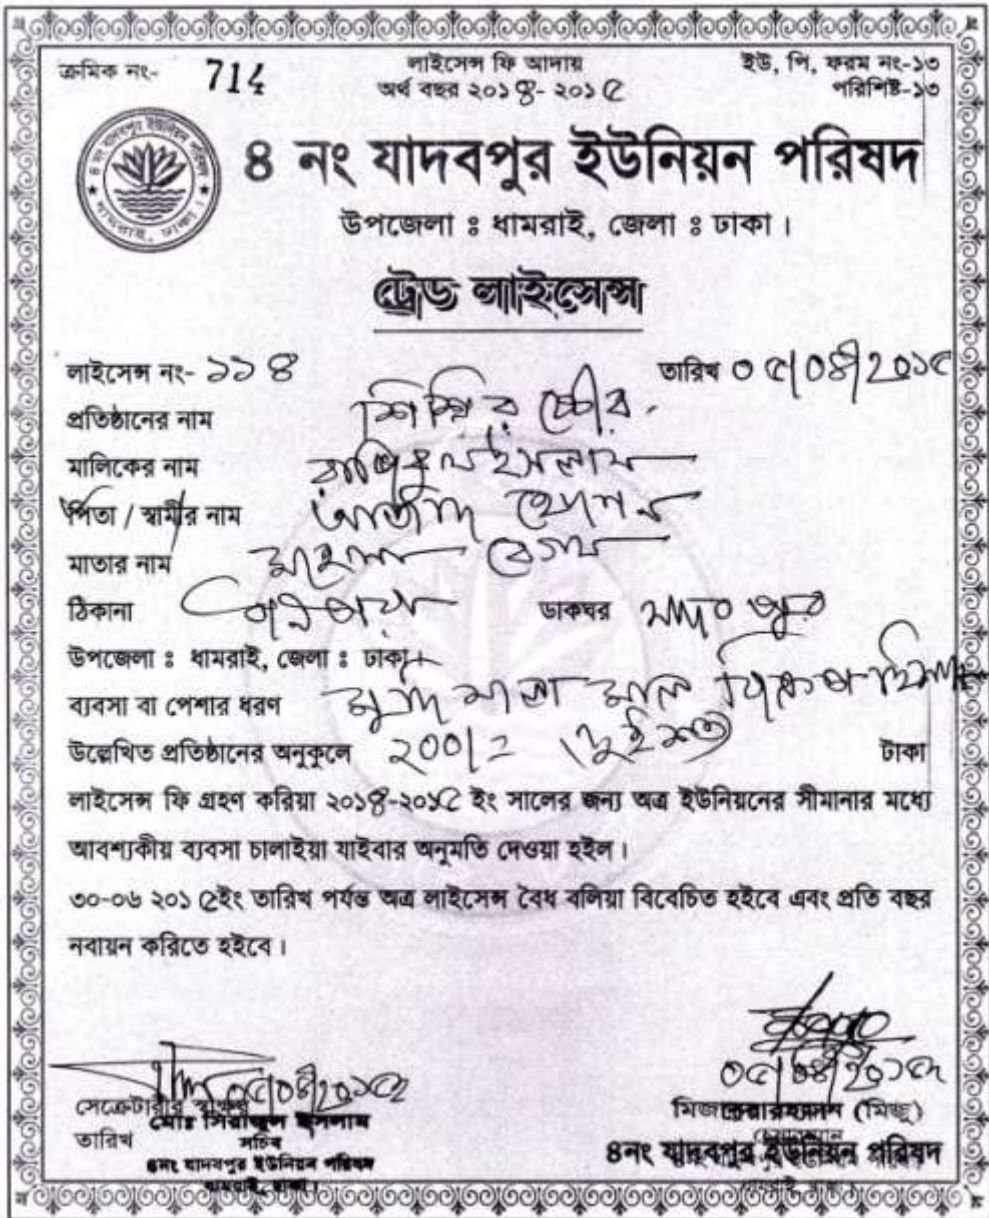 ক্রমিক নং- 714
লাইসেন্স ফি আদায়
অর্থ বছর ২০১৪- ২০১৫
ইউ, পি, ফরম নং-১৩
পরিশিষ্ট-১৩
৪ নং যাদবপুর ইউনিয়ন পরিষদ
উপজেলা ঃ ধামরাই, জেলা ঃ ঢাকা।
ট্রেড লাইসেন্স
লাইসেন্স নং- ১১৪ তারিখ ০৫/০৪/২০১৫
প্রতিষ্ঠানের নাম শিশির ষ্টোর
মালিকের নাম
পিতা / স্বামীর নাম
মাতার নাম বেগম
ঠিকানা ডাকঘর
উপজেলা ঃ ধামরাই, জেলা ঃ ঢাকা।
ব্যবসা বা পেশার ধরণ মাল
উল্লেখিত প্রতিষ্ঠানের অনুকুলে ২০০/= (দুইশত) টাকা
লাইসেন্স ফি গ্রহণ করিয়া ২০১৪-২০১৫ ইং সালের জন্য অত্র ইউনিয়নের সীমানার মধ্যে
আবশ্যকীয় ব্যবসা চালাইয়া যাইবার অনুমতি দেওয়া হইল।
৩০-০৬ ২০১৫ইং তারিখ পর্যন্ত অত্র লাইসেন্স বৈধ বলিয়া বিবেচিত হইবে এবং প্রতি বছর
নবায়ন করিতে হইবে।
০৫/০৪/২০১৫
সেক্রেটারীর স্বাক্ষর
মোঃ সিরাজুল ইসলাম
তারিখ
সচিব
৪নং যাদবপুর ইউনিয়ন পরিষদ
ধামরাই, ঢাকা।
০৫/০৪/২০১৫
(মিজু)
৪নং যাদবপুর ইউনিয়ন পরিষদ